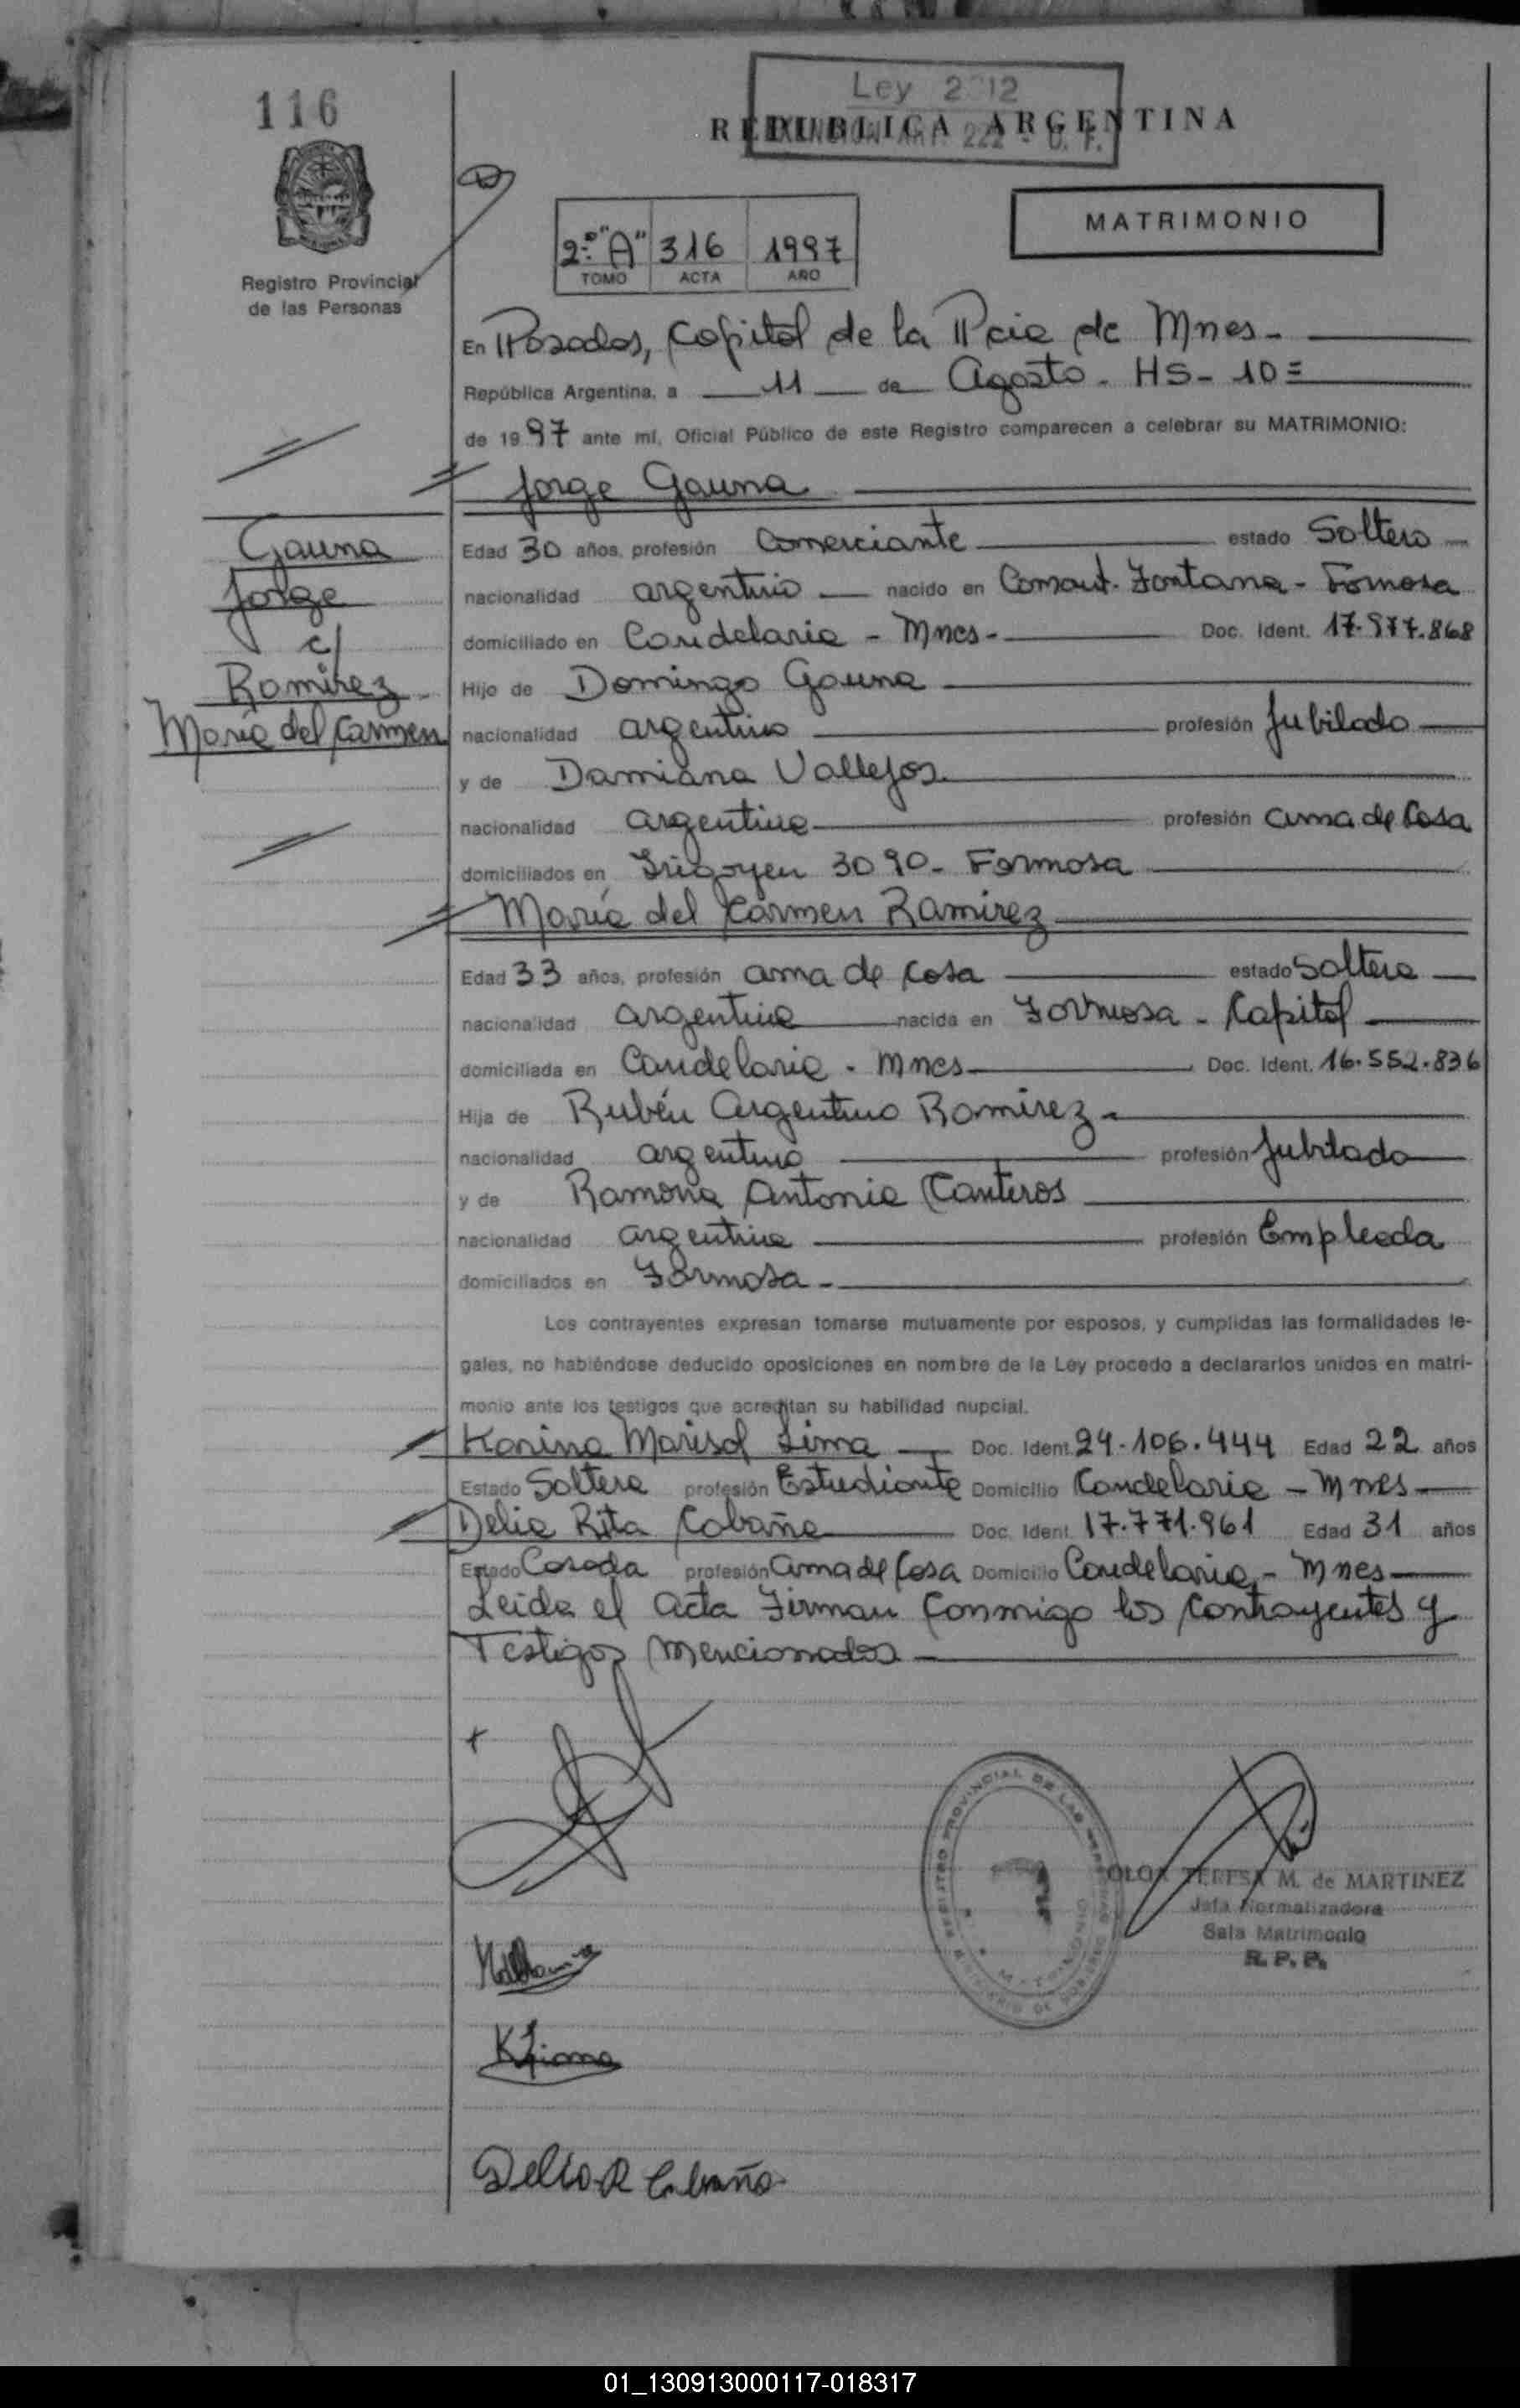 116
Ley
REPUBLICA ARGENTINA
Registro Provincial
de las Personas
2º "A" 316 1997
TOMO ACTA AÑO
MATRIMONIO
En Posadas, Capital de la Pcia de Mnes-
República Argentina, a 11 de Agosto - HS- 10=
de 1997 ante mí, Oficial Público de este Registro comparecen a celebrar su MATRIMONIO:
Jorge Gauna
Gauna
Jorge
c/
Ramírez
María del Carmen
Edad 30 años, profesión Comerciante estado Soltero
nacionalidad argentino nacido en Comant. Fontana - Formosa
domiciliado en Candelaria - Mnes- Doc. Ident. 17.977.868
Hijo de Domingo Gauna
nacionalidad argentino profesión Jubilado
y de Damiana Vallejos
nacionalidad argentina profesión ama de Casa
domiciliados en Irigoyen 3090- Formosa
María del Carmen Ramirez
Edad 33 años, profesión ama de casa estado Soltera
nacionalidad argentina nacida en Formosa - Capital
domiciliada en Candelaria - Mnes Doc. Ident. 16.552.836
Hija de Rubén Argentino Ramirez-
nacionalidad argentino profesión Jubilado
y de Ramona Antonia Canteros
nacionalidad argentina profesión Empleada
domiciliados en Formosa-
Los contrayentes expresan tomarse mutuamente por esposos, y cumplidas las formalidades le-
gales, no habiéndose deducido oposiciones en nombre de la Ley procedo a declararlos unidos en matri-
monio ante los testigos que acreditan su habilidad nupcial.
Karina Marisol Lima Doc. Ident. 24.106.444 Edad 22 años
Estado Soltera profesión Estudiante Domicilio Candelaria - Mnes
Delia Rita Cabaña Doc. Ident. 17.771.961 Edad 31 años
Estado Casada profesión ama de Casa Domicilio Candelaria - Mnes
Leida el acta Firman Conmigo los Contrayentes y
Testigos Mencionados
TERESA M. de MARTINEZ
Jefa Normalizadora
Sala Matrimonio
R. P. P.
REGISTRO PROVINCIAL DE LAS PERSONAS
MINISTERIO DE GOBIERNO
K Lima
Delia R Cabaña
01_130913000117-018317